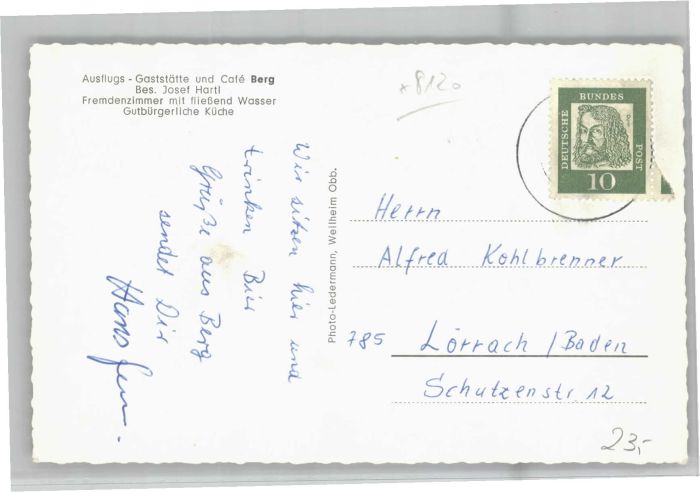 Ausflugs - Gaststätte und Café Berg
Bes. Josef Hartl
Fremdenzimmer mit fließend Wasser
Gutbürgerliche Küche
*8120
DEUTSCHE BUNDES POST
10
Wir sitzen hier und
trinken Bier
Grüße aus Berg
sendet Dir
Photo-Ledermann, Weilheim Obb.
Herrn
Alfred Kohlbrenner
785 Lörrach / Baden
Schutzenstr 12
23,-